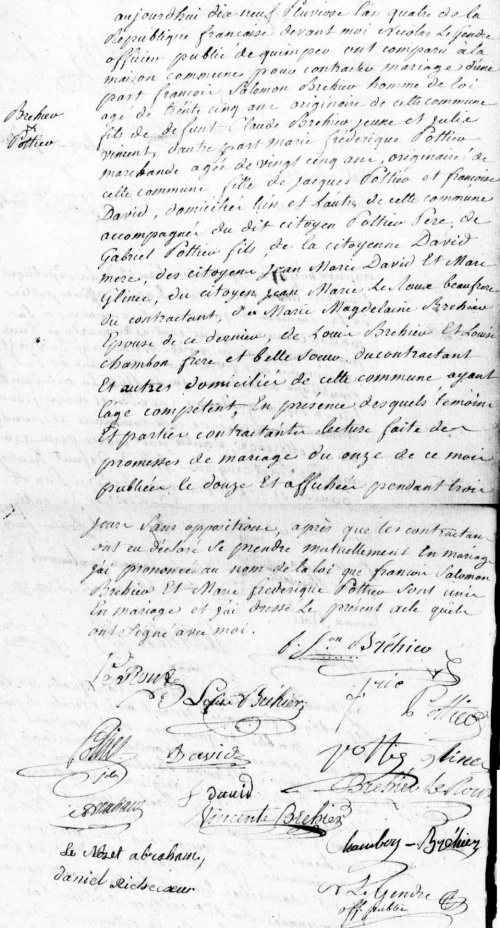 aujourdhui dix neuf Pluviose l'an quatre de la
République française devant moi Nicolas Le Gendre
officier public de quimper ont comparu à la
maison commune pour contracter mariage, d'une
part françois Solomon Brehier homme de loi
agé de trente cinq ans originaire de cette commune
Brehier
&
Pottier
fils de defunt Claude Brehier jeune et julie
vincent, d'autre part marie fréderique Pottier
marchande agée de vingt cinq ans, originaire de
cette commune fille de jacques Pottier et françoise
David, domiciliés l'un et l'autre de cette commune
accompagnés du dit citoyen Pottier Père, de
Gabriel Pottier fils, de la citoyenne David
mere, des citoyens Jean Marie David Et Marc
Glinec, du citoyen jean Marie Le Roux beaufrere
du contractant, de Marie Magdelaine Brehier
Epouse de ce dernier, de Louis Brehier Et Louise
chambon frere et belle Soeur du contractant
Et autres domiciliés de cette commune ayant
l'age compétent, En présence desquels temoins
Et parties contractantes lecture faite des
promesses de mariage du onze de ce mois
publiées le douze Et affichées pendant trois
jours Sans oppositions, après que les contractans
ont eu déclaré Se prendre mutuellement En mariage
j'ai prononcé au nom de la loi que françois Solomon
Brehier Et Marie frederique Pottier Sont unis
En mariage et j'ai dressé Le présent acte qu'ils
ont Signé avec moi.
f. S.on Bréhier
Le Roux
Louise Bréhier
Pottier
Pottier
fils
David
Glinec
J david
Brehier Le Roux
Vincente Brehier
Chambon-Bréhier
Le Nozet abraham,
daniel Richecoeur
Le Gendre
off. public